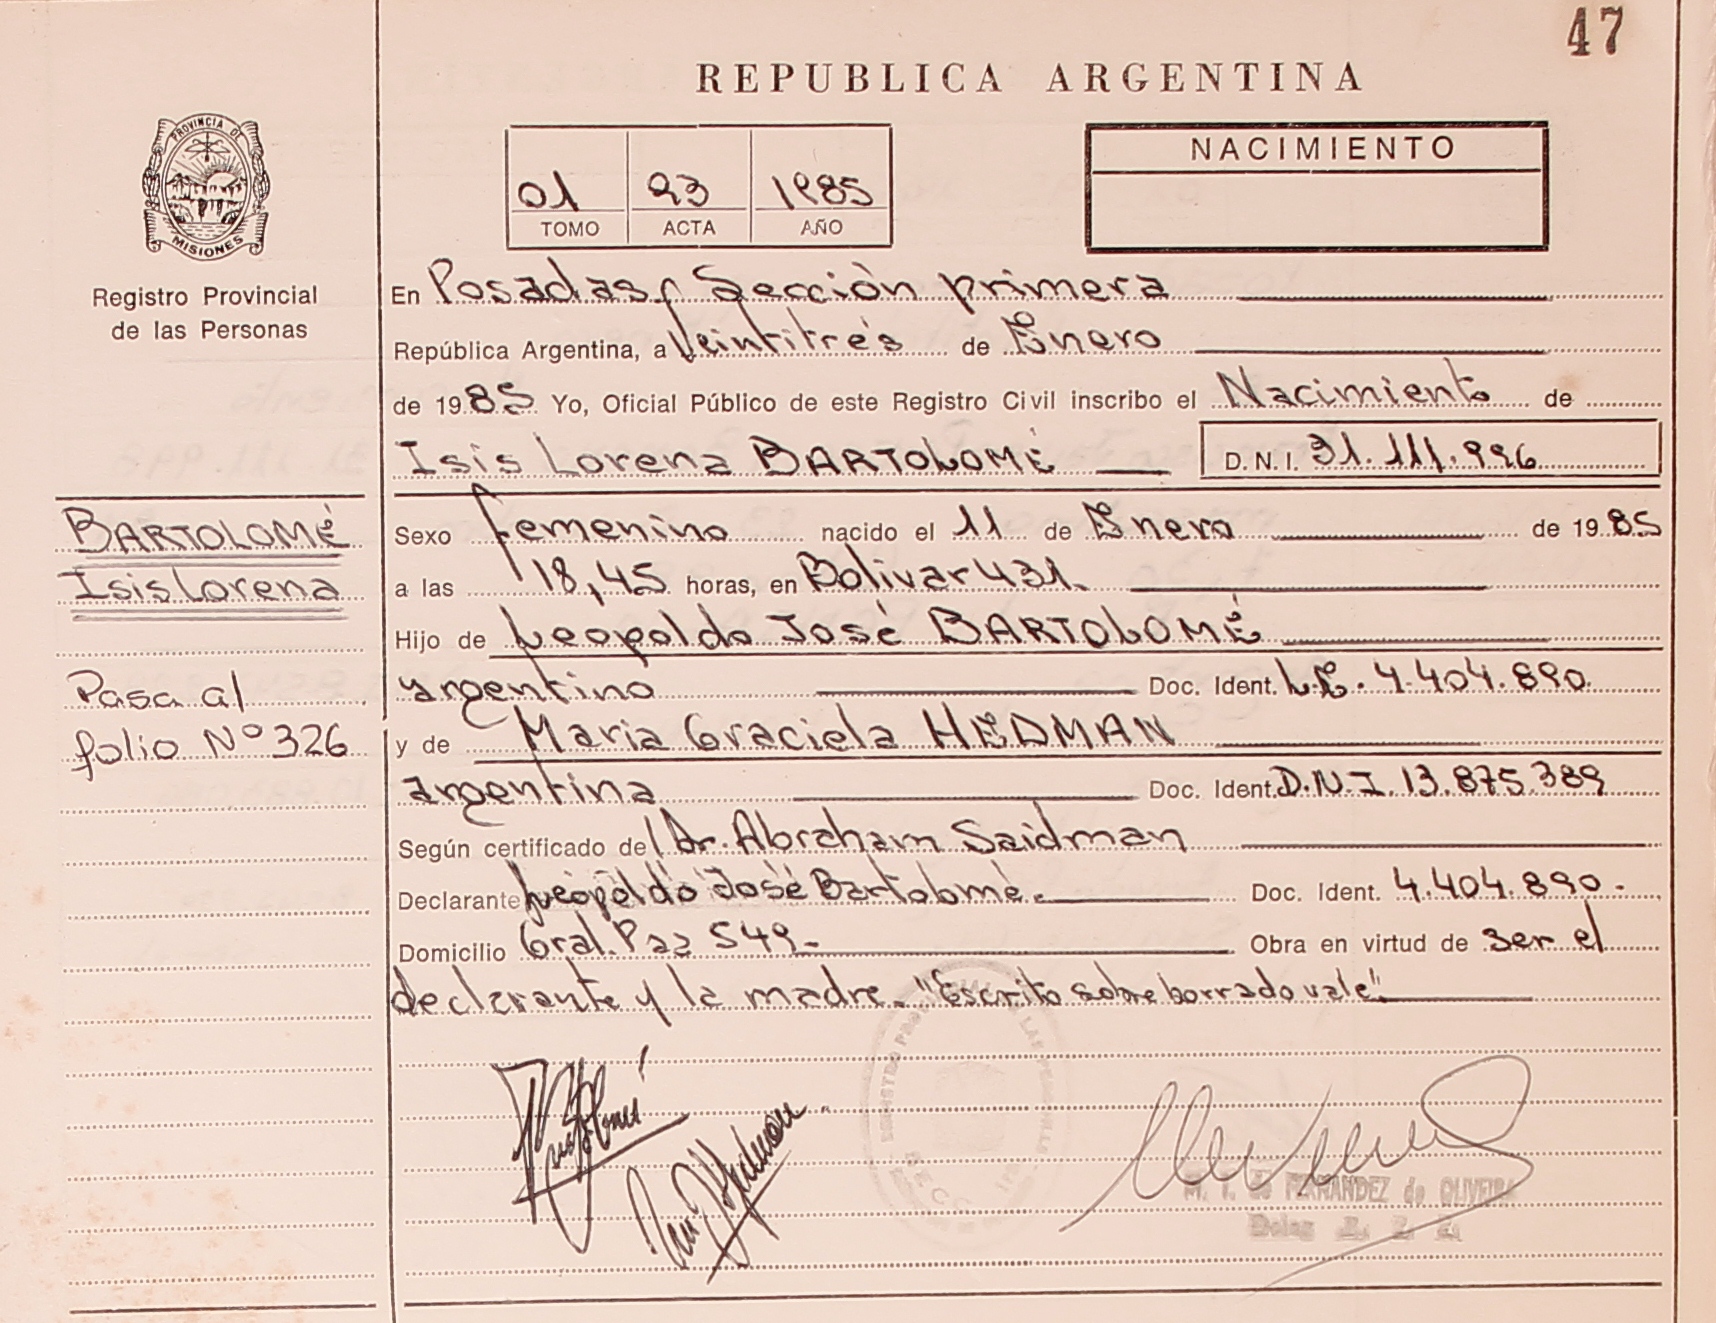 47
REPUBLICA ARGENTINA
PROVINCIA DE
MISIONES
Registro Provincial
de las Personas
01 93 1985
TOMO ACTA AÑO
NACIMIENTO
En Posadas, Sección primera
República Argentina, a Veintitrés de Enero
de 1985 Yo, Oficial Público de este Registro Civil inscribo el Nacimiento de
Isis Lorena BARTOLOMÉ D.N.I. 31.111.996
BARTOLOMÉ
Isis Lorena
Pasa al
folio Nº 326
Sexo femenino nacido el 11 de Enero de 1985
a las 18,45 horas, en Bolivar 431.
Hijo de Leopoldo José BARTOLOMÉ
argentino Doc. Ident. L.E. 4.404.890
y de Maria Graciela HEDMAN
argentina Doc. Ident. D.N.I. 13.875.389
Según certificado de Dr. Abraham Saidman
Declarante Leopoldo José Bartolomé.- Doc. Ident. 4.404.890.-
Domicilio Gral. Paz 549.- Obra en virtud de ser el
declarante y la madre.- "Escrito sobre borrado vale".
M. T. de FERNANDEZ de OLIVEIRA